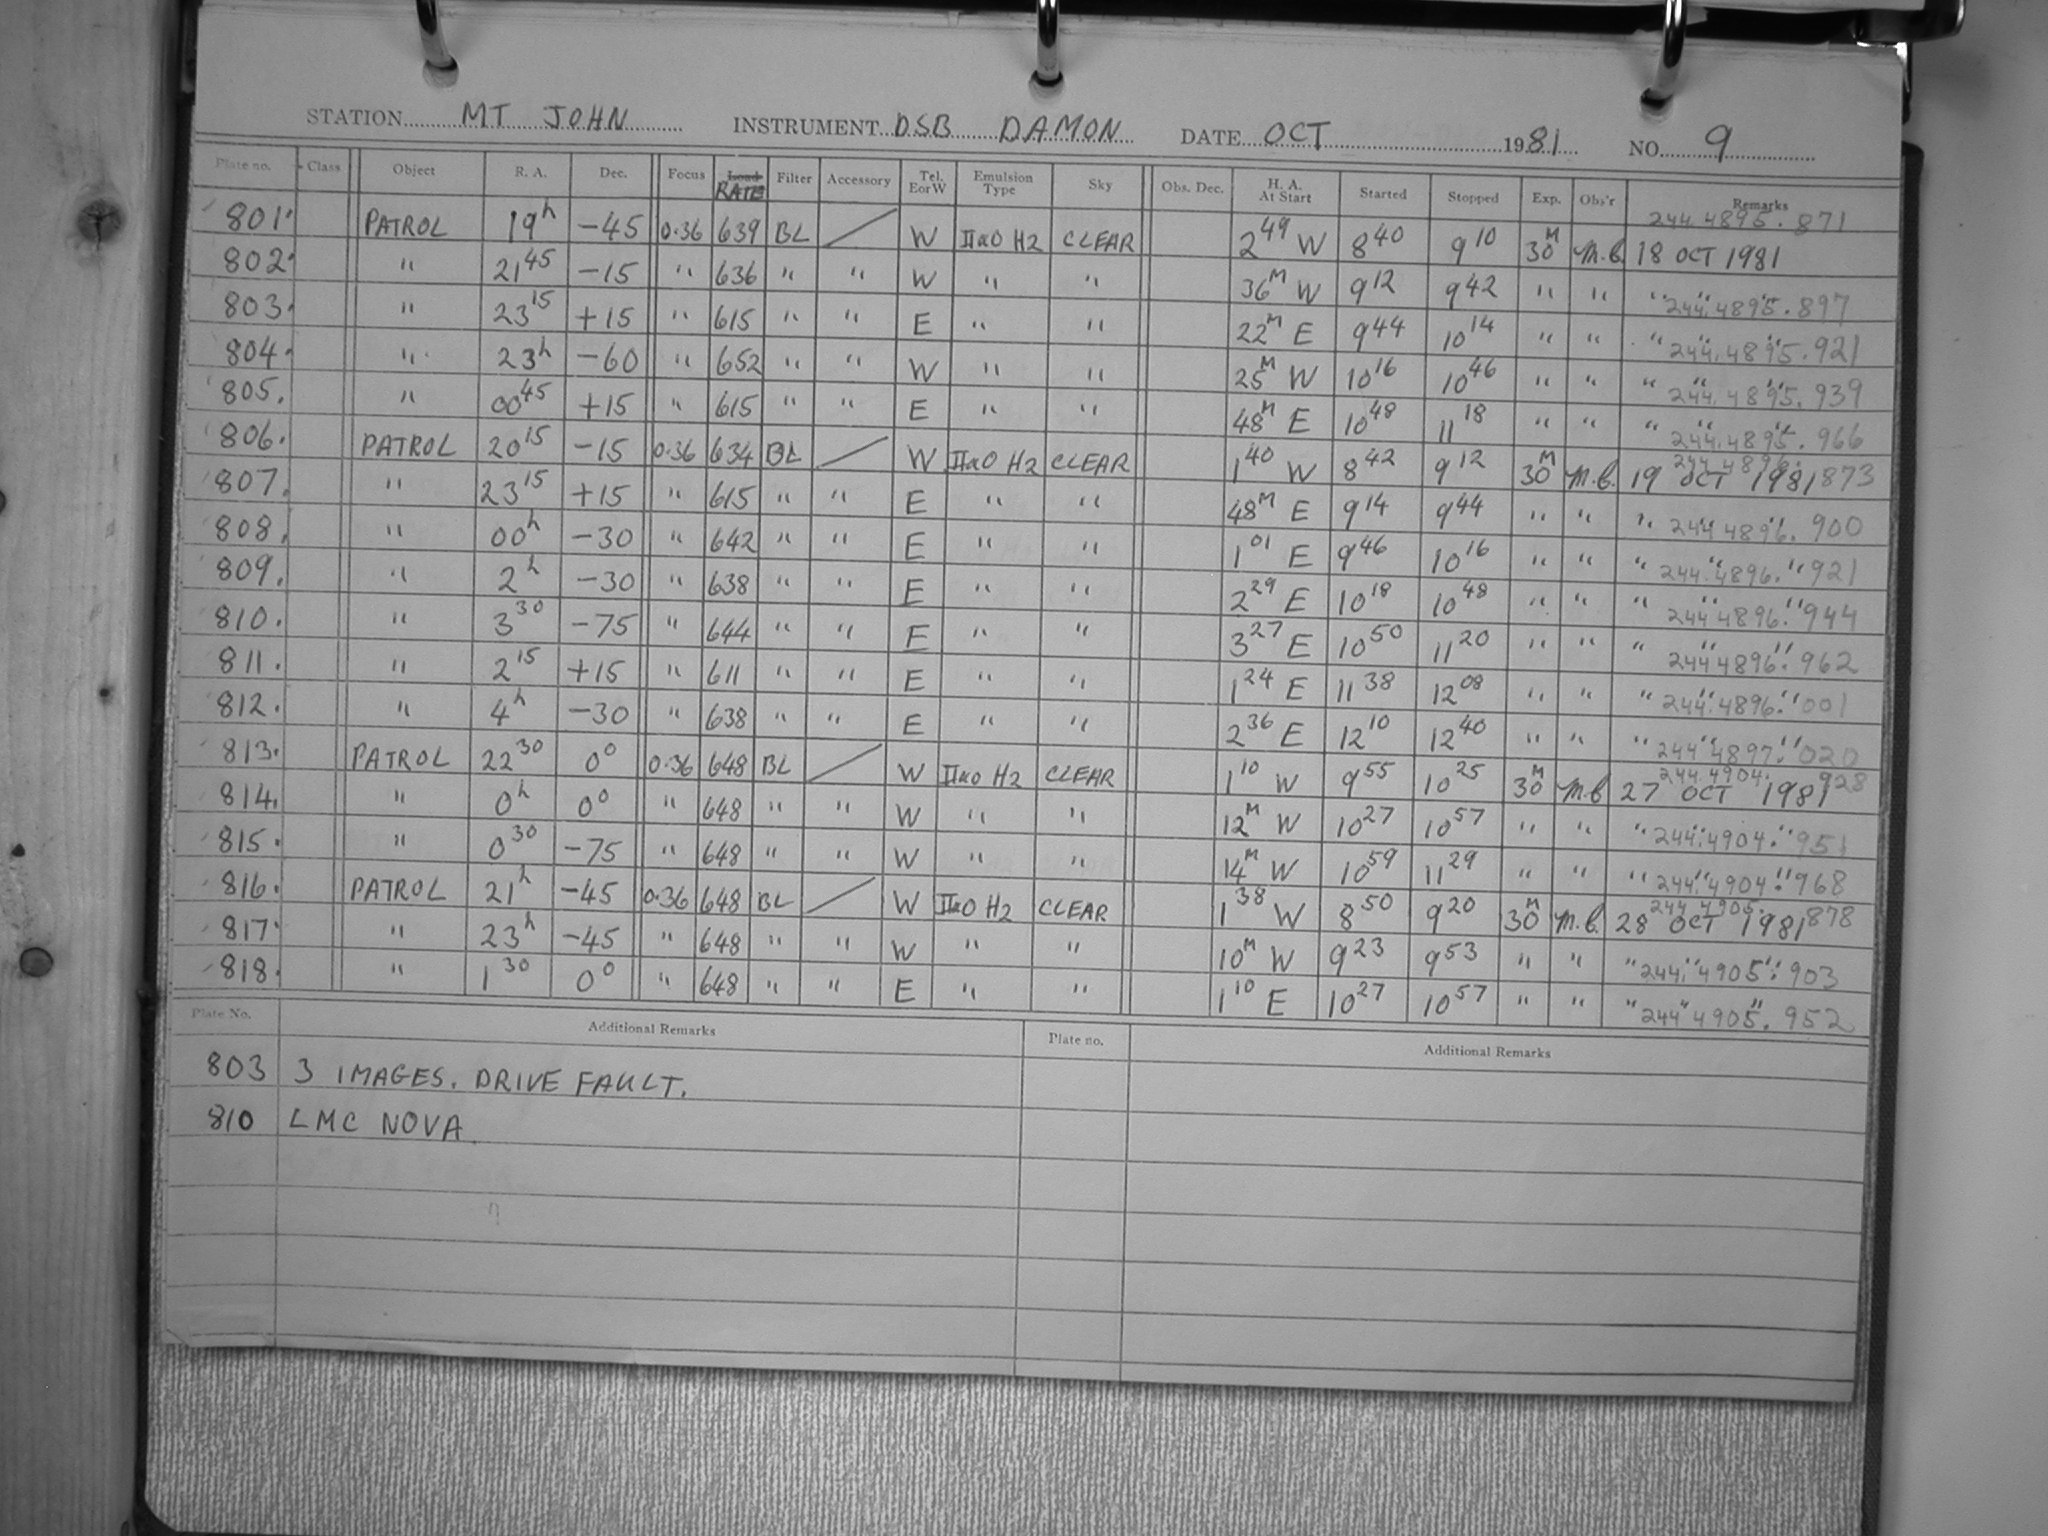 STATION MT JOHN INSTRUMENT DSB DAMON DATE OCT 1981 NO. 9
Plate no. Class Object R. A. Dec. Focus Load RATE Filter Accessory Tel. E or W Emulsion Type Sky Obs. Dec. H. A. At Start Started Stopped Exp. Obs'r Remarks
801 PATROL 19h -45 0.36 639 BL / W IIaO H2 CLEAR 2 49 W 8 40 9 10 30M M.B. 18 OCT 1981 244 4895.871
802 " 21 45 -15 " 636 " " W " " 36M W 9 12 9 42 " " " " " 244 4895.897
803 " 23 15 +15 " 615 " " E " " 22M E 9 44 10 14 " " " " " 244 4895.921
804 " 23h -60 " 652 " " W " " 25M W 10 16 10 46 " " " " " 244 4895.939
805 " 00 45 +15 " 615 " " E " " 48M E 10 48 11 18 " " " " " 244 4895.966
806 PATROL 20 15 -15 0.36 634 BL / W IIaO H2 CLEAR 1 40 W 8 42 9 12 30M M.B. 19 OCT 1981 244 4896.873
807 " 23 15 +15 " 615 " " E " " 48M E 9 14 9 44 " " " " 244 4896.900
808 " 00h -30 " 642 " " E " " 1 01 E 9 46 10 16 " " " " " 244 4896.921
809 " 2h -30 " 638 " " E " " 2 29 E 10 18 10 48 " " " " " 244 4896.944
810 " 3 30 -75 " 644 " " E " " 3 27 E 10 50 11 20 " " " " " 244 4896.962
811 " 2 15 +15 " 611 " " E " " 1 24 E 11 38 12 08 " " " " " 244 4896.001
812 " 4h -30 " 638 " " E " " 2 36 E 12 10 12 40 " " " " " 244 4897.020
813 PATROL 22 30 0° 0.36 648 BL / W IIaO H2 CLEAR 1 10 W 9 55 10 25 30M M.B. 27 OCT 1981 244 4904.928
814 " 0h 0° " 648 " " W " " 12M W 10 27 10 57 " " " " " 244 4904.951
815 " 0 30 -75 " 648 " " W " " 14M W 10 59 11 29 " " " " " 244 4904.968
816 PATROL 21h -45 0.36 648 BL / W IIaO H2 CLEAR 1 38 W 8 50 9 20 30M M.B. 28 OCT 1981 244 4905.878
817 " 23h -45 " 648 " " W " " 10M W 9 23 9 53 " " " " " 244 4905.903
818 " 1 30 0° " 648 " " E " " 1 10 E 10 27 10 57 " " " " " 244 4905.952
Plate No. Additional Remarks Plate no. Additional Remarks
803 3 IMAGES. DRIVE FAULT.
810 LMC NOVA